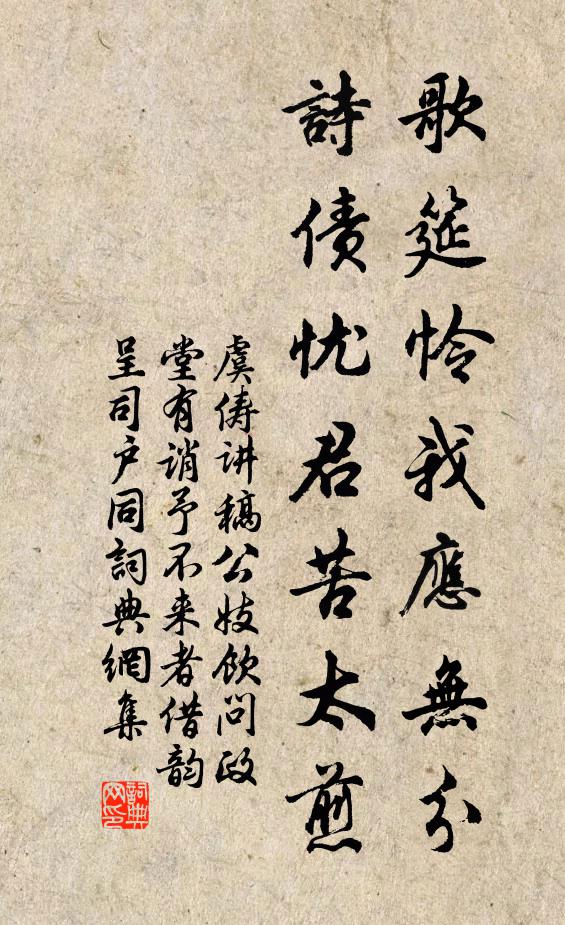 歌筵怜我應無分
詩債忧君苦太煎
虞俦讲稿公妓飲问政
堂有诮予不来者借韵
呈司户同詞典網集
詞典
网印